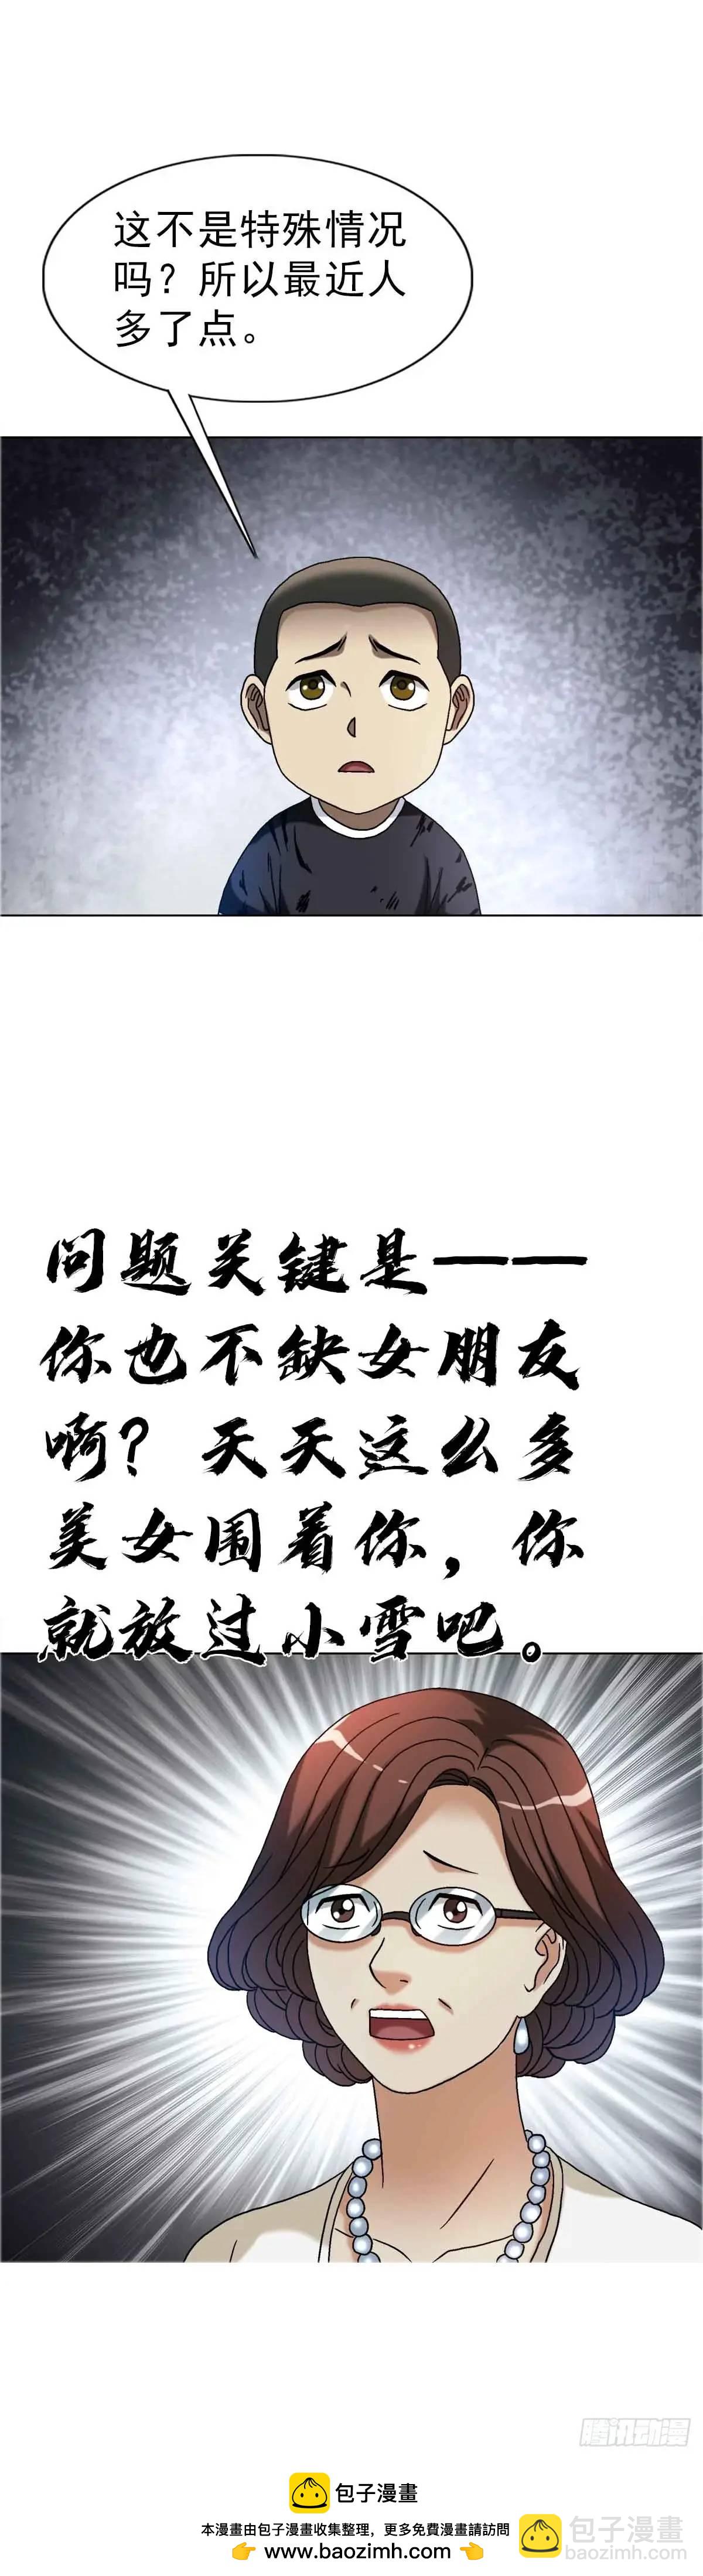 这不是特殊情况
吗？所以最近人
多了点。
问题关键是——
你也不缺女朋友
啊？天天这么多
美女围着你，你
就放过小雪吧。
腾讯动漫
包子漫畫
本漫畫由包子漫畫收集整理，更多免費漫畫請訪問
👉www.baozimh.com👈
包子漫畫
baozimh.com